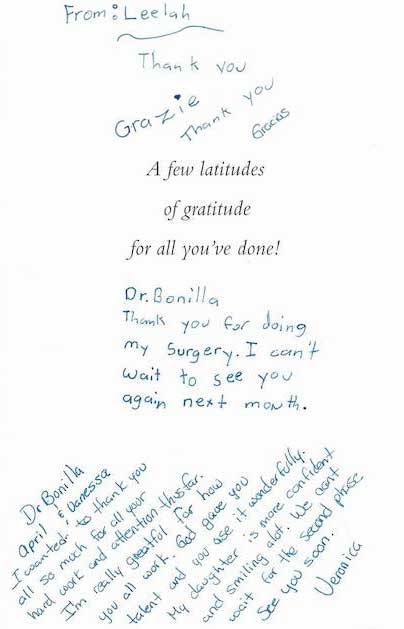 From: Leelah
Thank you
Grazie
Thank you
Gracias
A few latitudes
of gratitude
for all you've done!
Dr. Bonilla
Thank you for doing
my surgery. I can't
wait to see you
again next month.
Dr Bonilla
April & Vanessa
I wanted to thank you
all so much for all your
hard work and attention thusfar.
I'm really greatful for how
you all work. God gave you
talent and you use it wonderfully.
My daughter is more confident
and smiling alot. We cant
wait for the second phase
See you soon.
Veronica